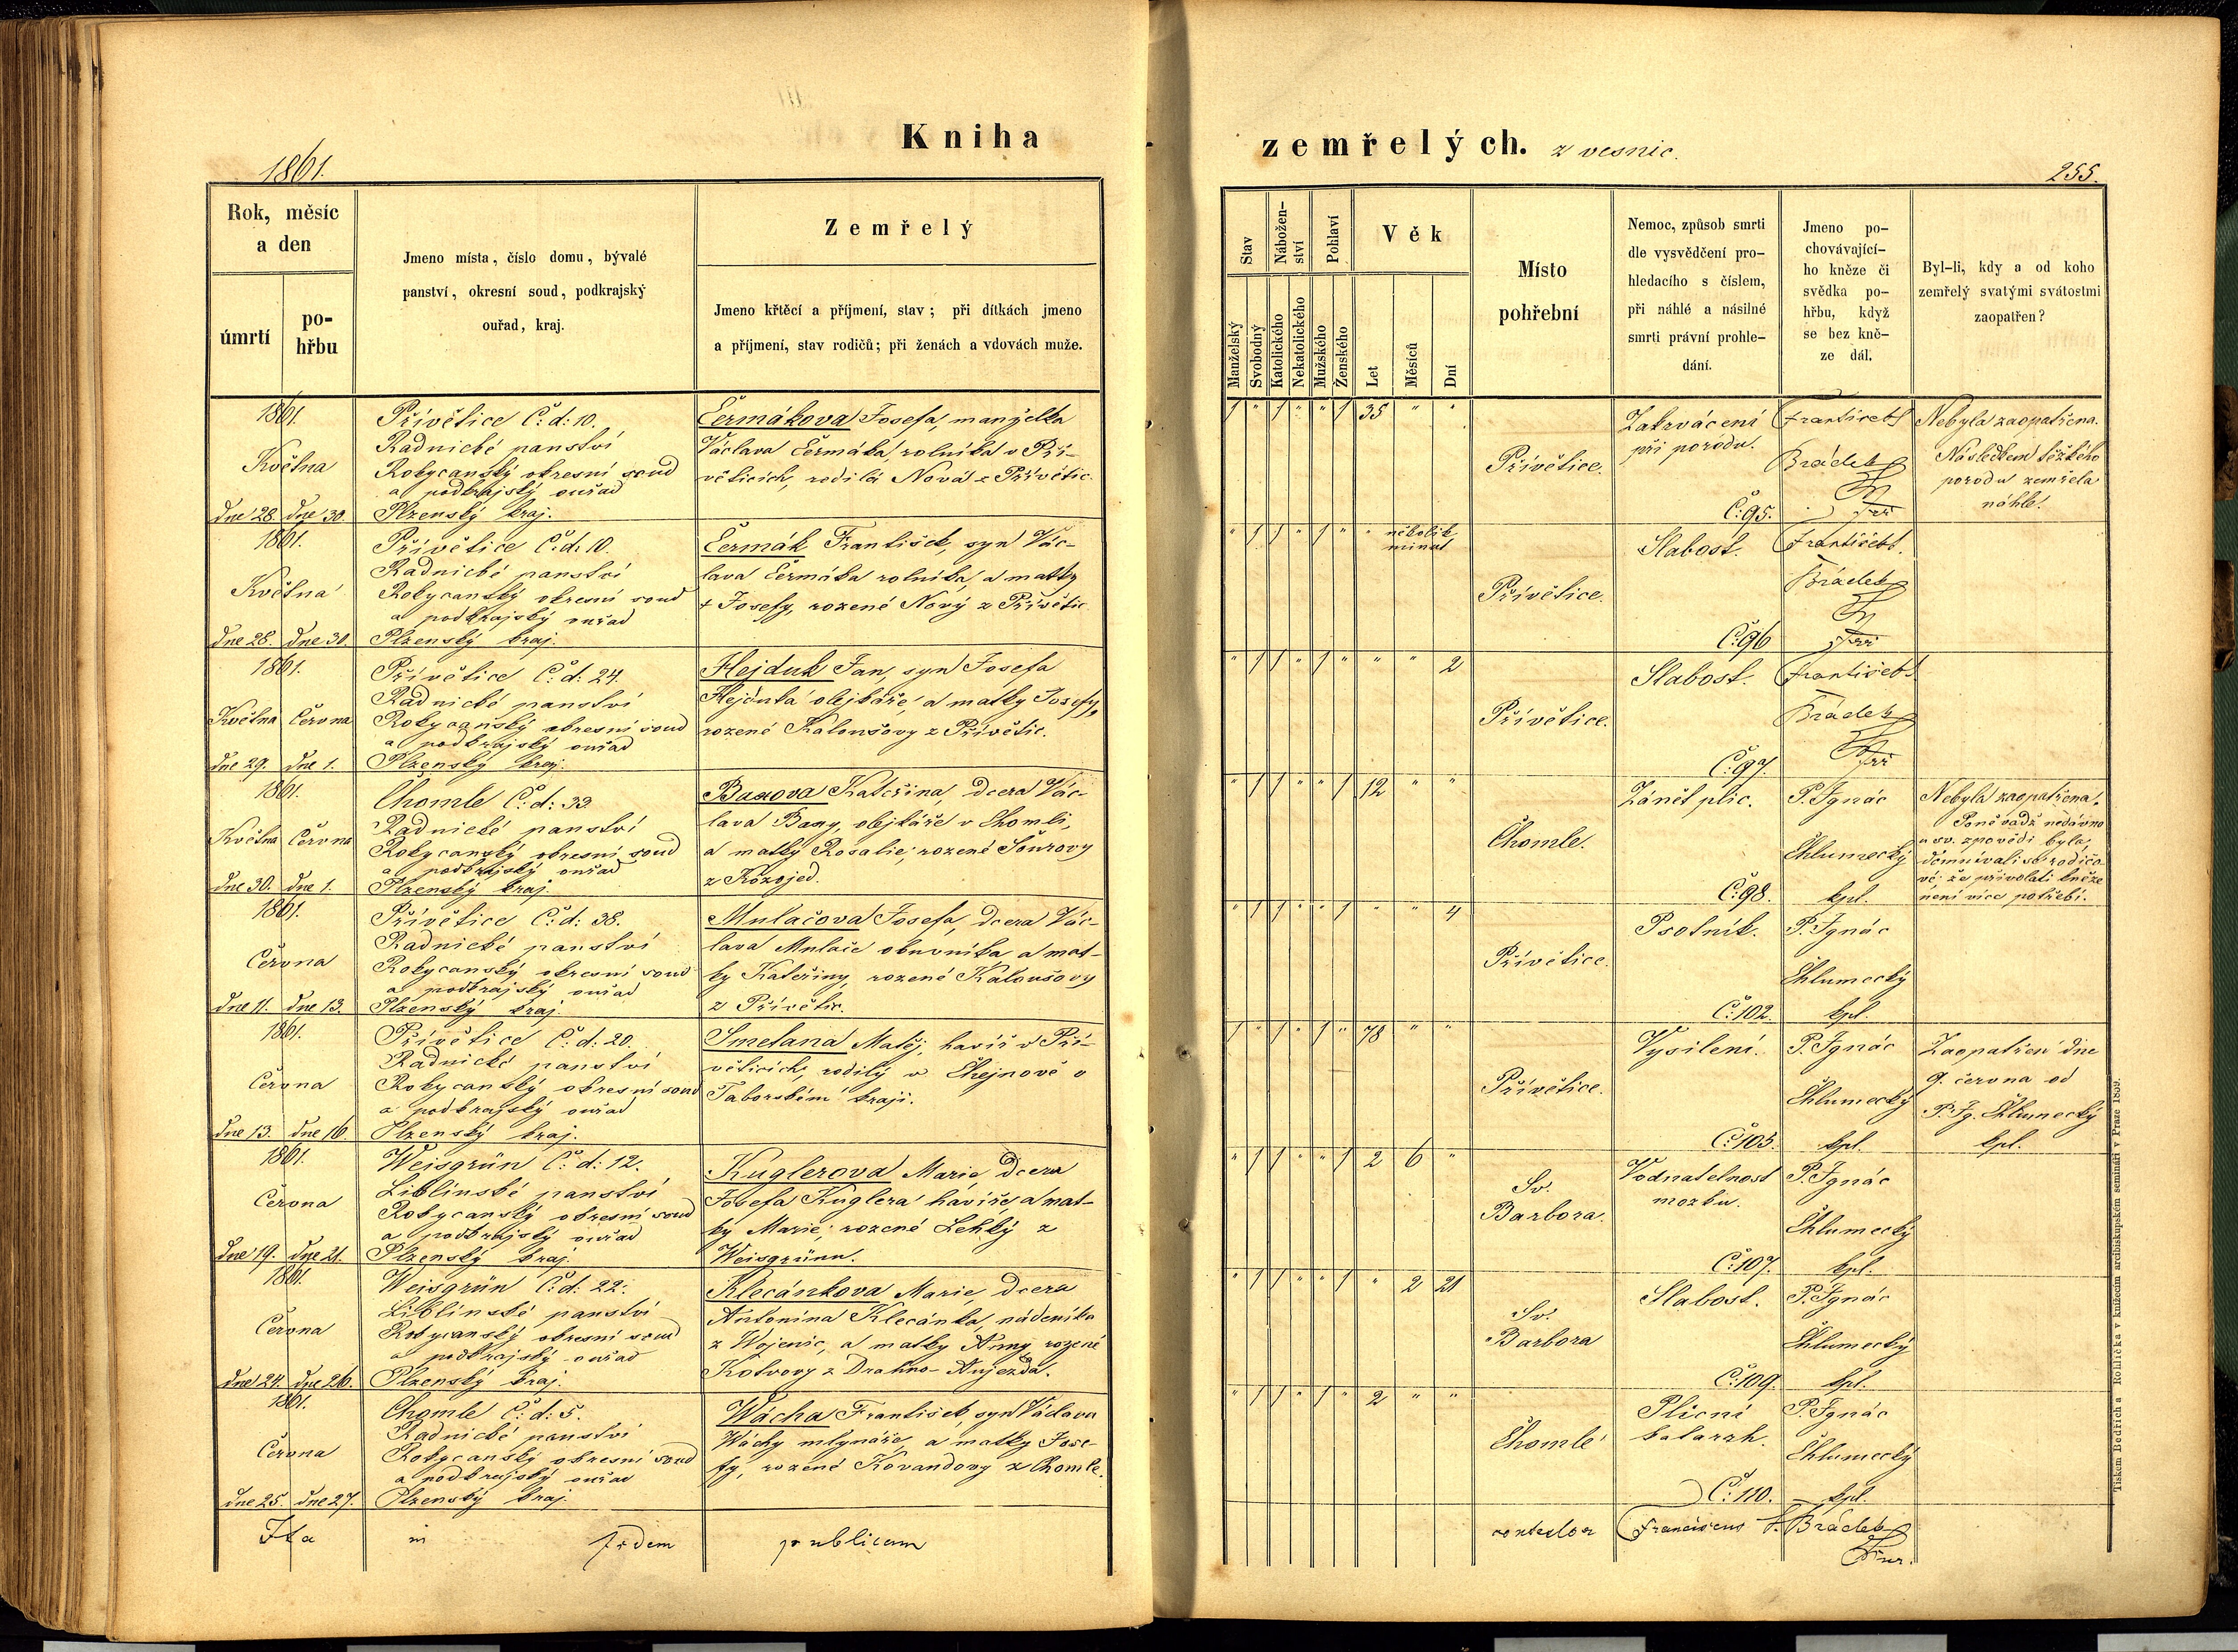 Kniha
zemřelých. z vesnic.
1861.
255.
Rok, měsíc
a den
úmrtí
po-
hřbu
Jmeno místa, číslo domu, bývalé
panství, okresní soud, podkrajský
ouřad, kraj.
Zemřelý
Jmeno křtěcí a příjmení, stav; při dítkách jmeno
a příjmení, stav rodičů; při ženách a vdovách muže.
Stav
Manželský
Svobodný
Nábožen-
ství
Katolického
Nekatolického
Pohlaví
Mužského
Ženského
Věk
Let
Měsíců
Dní
Místo
pohřební
Nemoc, způsob smrti
dle vysvědčení pro-
hledacího s číslem,
při náhlé a násilné
smrti právní prohle-
dání.
Jmeno po-
chovávající-
ho kněze či
svědka po-
hřbu, když
se bez kně-
ze dál.
Byl-li, kdy a od koho
zemřelý svatými svátostmi
zaopatřen?
1861.
Května
dne 28. dne 30.
Přívětice Č: d: 10.
Radnické panství
Rokycanský okresní soud
a podkrajský ouřad
Plzenský kraj.
Čermákova Josefa, manželka
Václava Čermáka, rolníka v Pří-
věticích, rodilá Nová z Přívětic.
1 " 1 " " 1 35 " "
Přívětice.
Zakrvácení
při porodu.
Č: 95.
František
Brádek
Nebyla zaopatřena.
Následkem těžkého
porodu zemřela
náhle.
1861.
Května
dne 28. dne 30.
Přívětice Č: d. 10.
Radnické panství
Rokycanský okresní soud
a podkrajský ouřad
Plzenský kraj.
Čermák František, syn Vác-
lava Čermáka rolníka, a matky
+ Josefy, rozené Nový z Přívětic.
" 1 1 " 1 " " několik
minut
Přívětice.
Slabost.
Č: 96
František
Brádek
1861.
Května Června
dne 29. dne 1.
Přívětice Č: d: 24.
Radnické panství
Rokycanský okresní soud
a podkrajský ouřad
Plzenský kraj.
Hejduk Jan, syn Josefa
Hejduka olejkáře, a matky Josefy,
rozené Kaloušovy z Přívětic.
" 1 1 " 1 " " " 2
Přívětice.
Slabost.
Č: 97.
František
Brádek
1861.
Května Června
dne 30. dne 1.
Chomle Č: d: 33
Radnické panství
Rokycanský okresní soud
a podkrajský ouřad
Plzenský kraj.
Baxova Kateřina, dcera Vác-
lava Baxy, olejkáře v Chomli,
a matky Rosalie, rozené Sourovy
z Kozojed.
" 1 1 " " 1 12 " "
Chomle.
Zánět plic.
Č: 98.
P. Ignác
Chlumecký
kpl.
Nebyla zaopatřena.
Poněvadž nedávno
u sv. zpovědi byla,
domnívali se rodičo-
vé: že přivolati kněze
není více potřebí.
1861.
Června
dne 11. dne 13.
Přívětice Č: d: 38.
Radnické panství
Rokycanský okresní soud
a podkrajský ouřad
Plzenský kraj.
Mulačova Josefa, dcera Vác-
lava Mulače obuvníka a mat-
ky Kateřiny, rozené Kaloušovy
z Přívětic.
" 1 1 " " 1 " " 4
Přívětice.
Psotník.
Č: 102.
P. Ignác
Chlumecký
kpl.
1861.
Června
dne 13. dne 16.
Přívětice Č: d: 20.
Radnické panství
Rokycanský okresní soud
a podkrajský ouřad
Plzenský kraj.
Smetana Matěj, havíř v Pří-
věticích, rodilý v Chejnově v
Taborském kraji.
1 " 1 " 1 " 78 " "
Přívětice.
Vysílení.
Č: 103.
P. Ignác
Chlumecký
kpl.
Zaopatřen dne
9. června od
P. Ig. Chlumecký
kpl.
1861.
Června
dne 19. dne 21.
Weisgrün Č: d: 12.
Liblínské panství
Rokycanský okresní soud
a podkrajský ouřad
Plzenský kraj.
Kuglerova Marie, dcera
Josefa Kuglera havíře, a mat-
ky Marie, rozené Lehký z
Weisgrünu.
" 1 1 " " 1 2 6 "
Sv.
Barbora.
Vodnatelnost
mozku.
Č: 107.
P. Ignác
Chlumecký
kpl.
1861.
Června
dne 24. dne 26.
Weisgrün Č: d: 22.
Liblínské panství
Rokycanský okresní soud
a podkrajský ouřad
Plzenský kraj.
Klecánkova Marie, dcera
Antonína Klecánka, nádeníka
z Wojenic, a matky Anny, rozené
Kotvovy z Drahno-Aujezda.
" 1 1 " " 1 " 2 21
Sv.
Barbora
Slabost.
Č: 109.
P. Ignác
Chlumecký
kpl.
1861.
Června
dne 25. dne 27.
Chomle Č: d: 5.
Radnické panství
Rokycanský okresní soud
a podkrajský ouřad
Plzenský kraj.
Wácha František, syn Václava
Wáchy mlynáře, a matky Jose-
fy, rozené Kovandovy z Chomle.
" 1 1 " 1 " 2 " "
Chomle
Plicní
katarrh.
Č: 110.
P. Ignác
Chlumecký
kpl.
Ita in fidem publicam
Franciscus Brádek
Tiskem Bedřicha Rohlíčka v knížecím arcibiskupském semináři v Praze 1859.